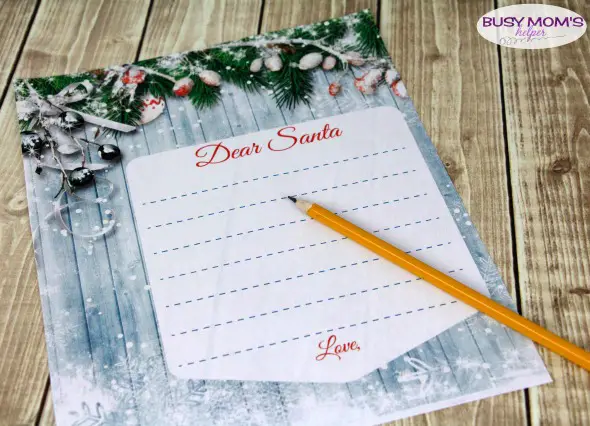 BUSY MOM'S
helper
Dear Santa
Love,